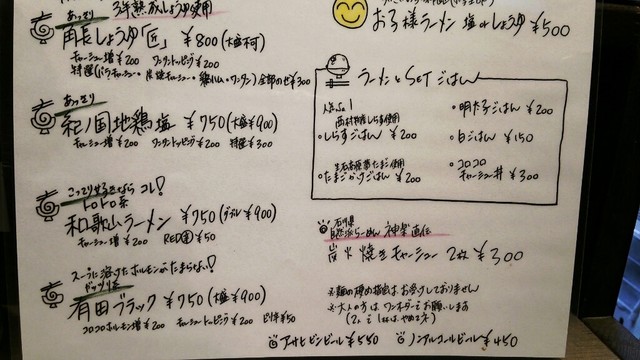 あっさり
3年熟成しょうゆ使用
角長しょうゆ「匠」 ¥800(大盛不可)
チャーシュー増 ¥200 ワンタントッピング ¥200
特選(バラチャーシュー・炭焼チャーシュー・鶏ハム・ワンタン)全部のせ ¥300
あっさり
紀ノ国地鶏塩 ¥750(大盛¥900)
チャーシュー増 ¥200 ワンタントッピング ¥200 特選 ¥300
こってり好きなら コレ!
トロトロ系
和歌山ラーメン ¥750(ダブル¥900)
チャーシュー増 ¥200 RED ¥50
スープに溶けたホルモンがたまらない!
ガッツリ系
有田ブラック ¥750(大盛¥900)
コロコロホルモン増 ¥200 チャーシュートッピング ¥200 ピリ辛 ¥50
お子様ラーメン 塩orしょうゆ ¥500
ラーメンとSETごはん
人気No.1
西村物産しらす使用
・しらすごはん ¥200
・明太子ごはん ¥200
・白ごはん ¥150
たまご使用
・たまごかけごはん ¥200
・コロコロチャーシュー丼 ¥300
石川県
自然派らーめん 神楽直伝
炭火焼きチャーシュー 2枚 ¥300
※麺の硬め指定はお受けしておりません
※大人の方はワンオーダーでお願いします
アサヒビンビール ¥550
ノンアルコールビール ¥450